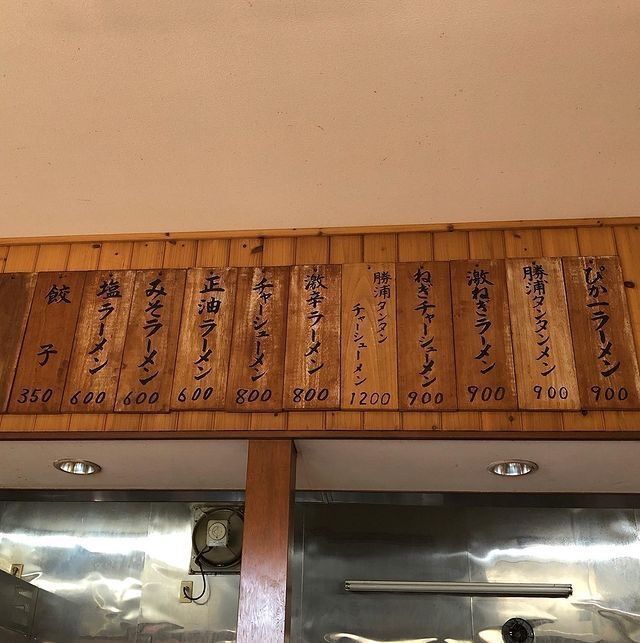 ぴか一ラーメン
900
勝浦タンタンメン
900
激ねぎラーメン
900
ねぎチャーシューメン
900
勝浦タンタン
チャーシューメン
1200
激辛ラーメン
800
チャーシューメン
800
正油ラーメン
600
みそラーメン
600
塩ラーメン
600
餃子
350